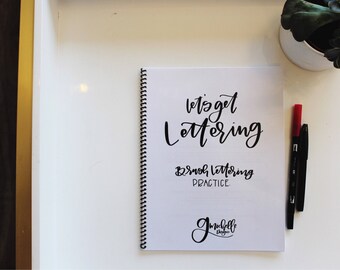 let's get
Lettering
Brush Lettering
PRACTICE
gmichelle